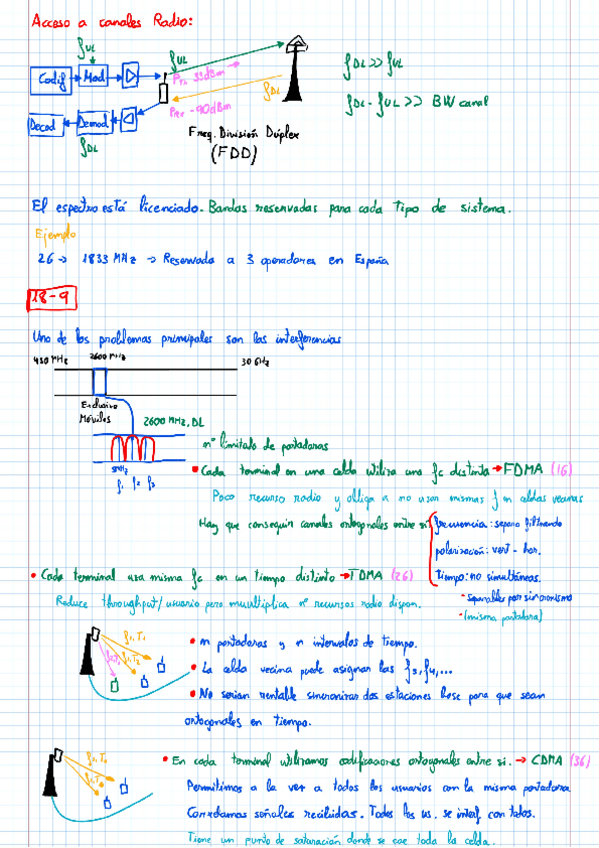 Acceso a canales Radio:
fUL
Codif
Mod
fUL
Ptx 33dBm
fDL
Prx -90dBm
Decod
Demod
fDL
Freq. División Dúplex
(FDD)
fDL >> fUL
fDL - fUL >> BW canal
El espectro está licenciado. Bandas reservadas para cada tipo de sistema.
Ejemplo
26 → 1833 MHz → Reservada a 3 operadores en España
18-9
Uno de los problemas principales son las interferencias
450 MHz
2600 MHz
30 GHz
Exclusivo
Móviles
2600 MHz, DL
5MHz
f1 f2 f3
nº limitado de portadoras
• Cada terminal en una celda utiliza una fc distinta → FDMA (1G)
Poco recurso radio y obliga a no usar mismas f en celdas vecinas
Hay que conseguir canales ortogonales entre sí
frecuencia: separo filtrando
polarización: vert - hor.
tiempo: no simultáneas.
- Separables por sincronismo
- (misma portadora)
• Cada terminal usa misma fc en un tiempo distinto → TDMA (2G)
Reduce throughput/usuario pero multiplica nº recursos radio dispon.
f1, T1
f1, T2
• m portadoras y n intervalos de tiempo.
• La celda vecina puede asignar las f3, f4, ...
• No serían rentable sincronizar dos estaciones base para que sean
ortogonales en tiempo.
• En cada terminal utilizamos codificaciones ortogonales entre si. → CDMA (3G)
Permitimos a la vez a todos los usuarios con la misma portadora
Correlamos señales recibidas. Todos los us. se interf con todos.
Tiene un punto de saturación donde se cae toda la celda.